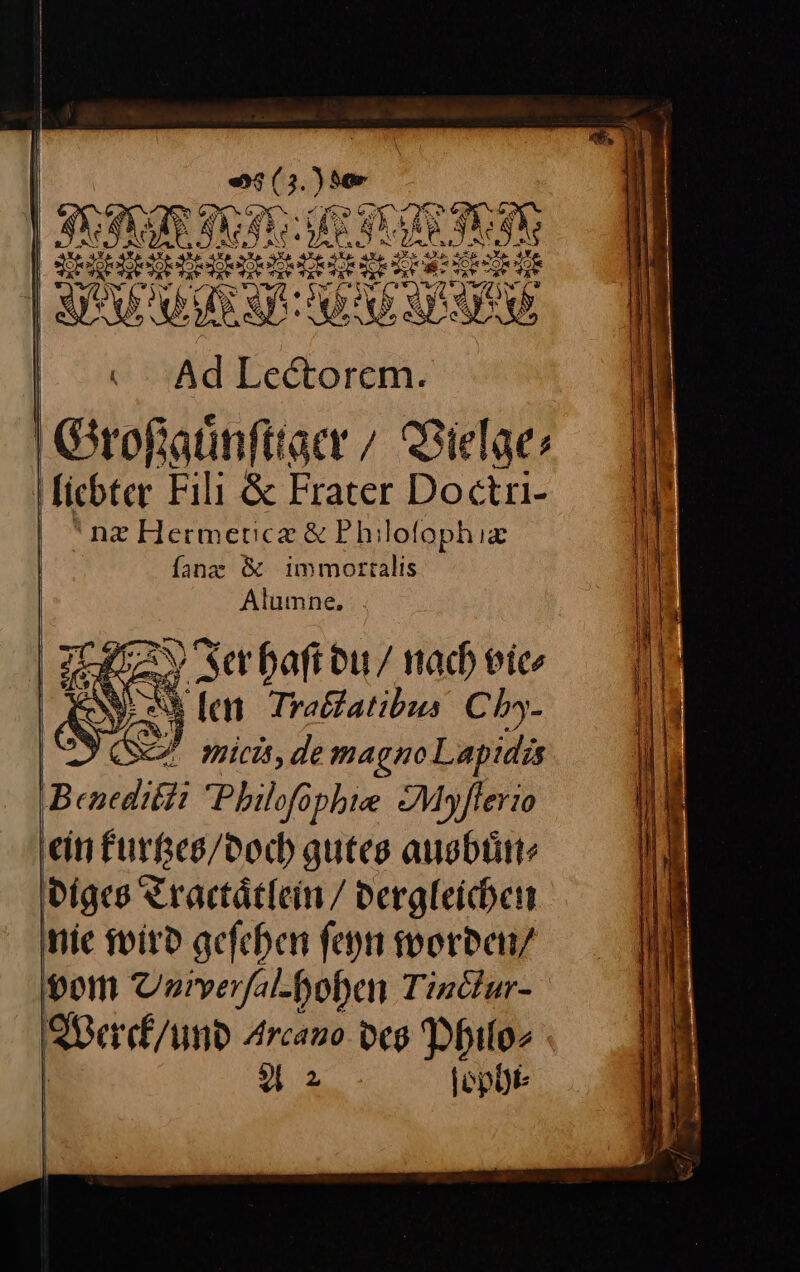 (3.)
Ad Lectorem.
Großgünſtiger / Vielge⸗
liebter Fili & Frater Doctri-
næ Hermeticæ & Philoſophiæ
ſanæ & immortalis
Alumne,
Hier haſt du / nach vie⸗
len Tractatibus Chy-
micis, de magno Lapidis
Benedicti Philoſophiæ Myſterio
ein kurtzes / doch gutes ausbün⸗
diges Tractätlein / dergleichen
nie wird geſehen ſeyn worden /
vom Univerſal-hohen Tinctur-
Werck / und Arcano des Philo⸗
A 2 ſophi-